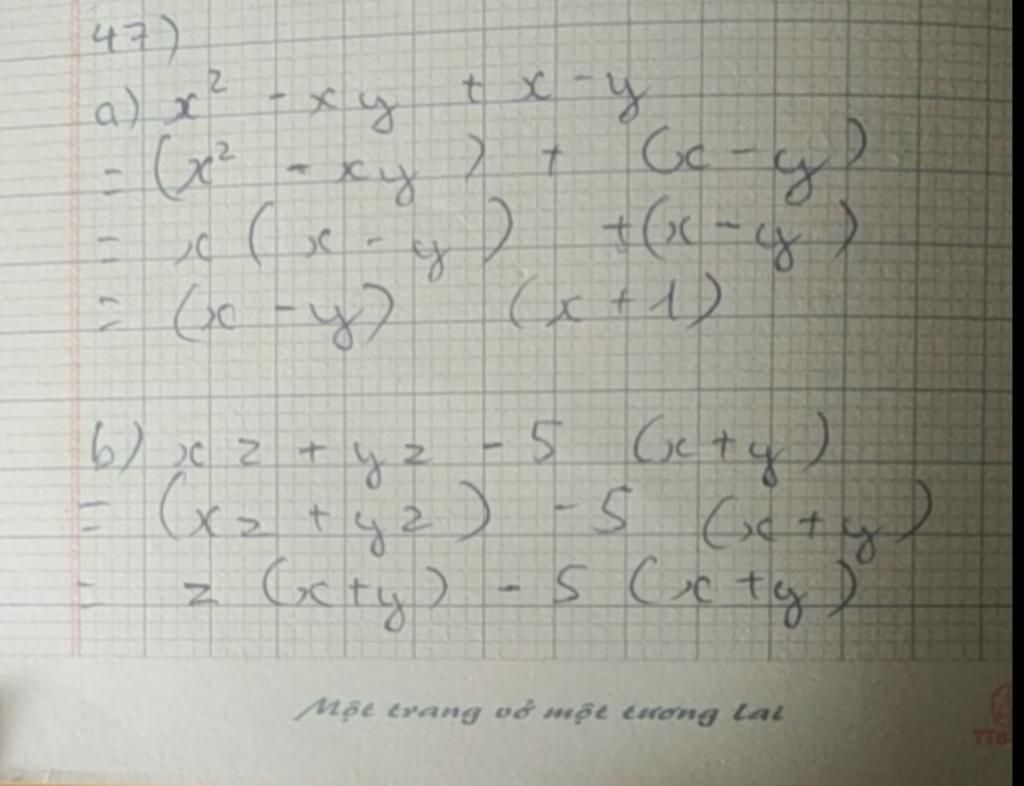 47)
a) x² - xy + x - y
= (x² - xy) + (x - y)
= x (x - y) + (x - y)
= (x - y) (x + 1)
b) xz + yz - 5 (x + y)
= (xz + yz) - 5 (x + y)
= z (x + y) - 5 (x + y)
Một trang vở một tương lai